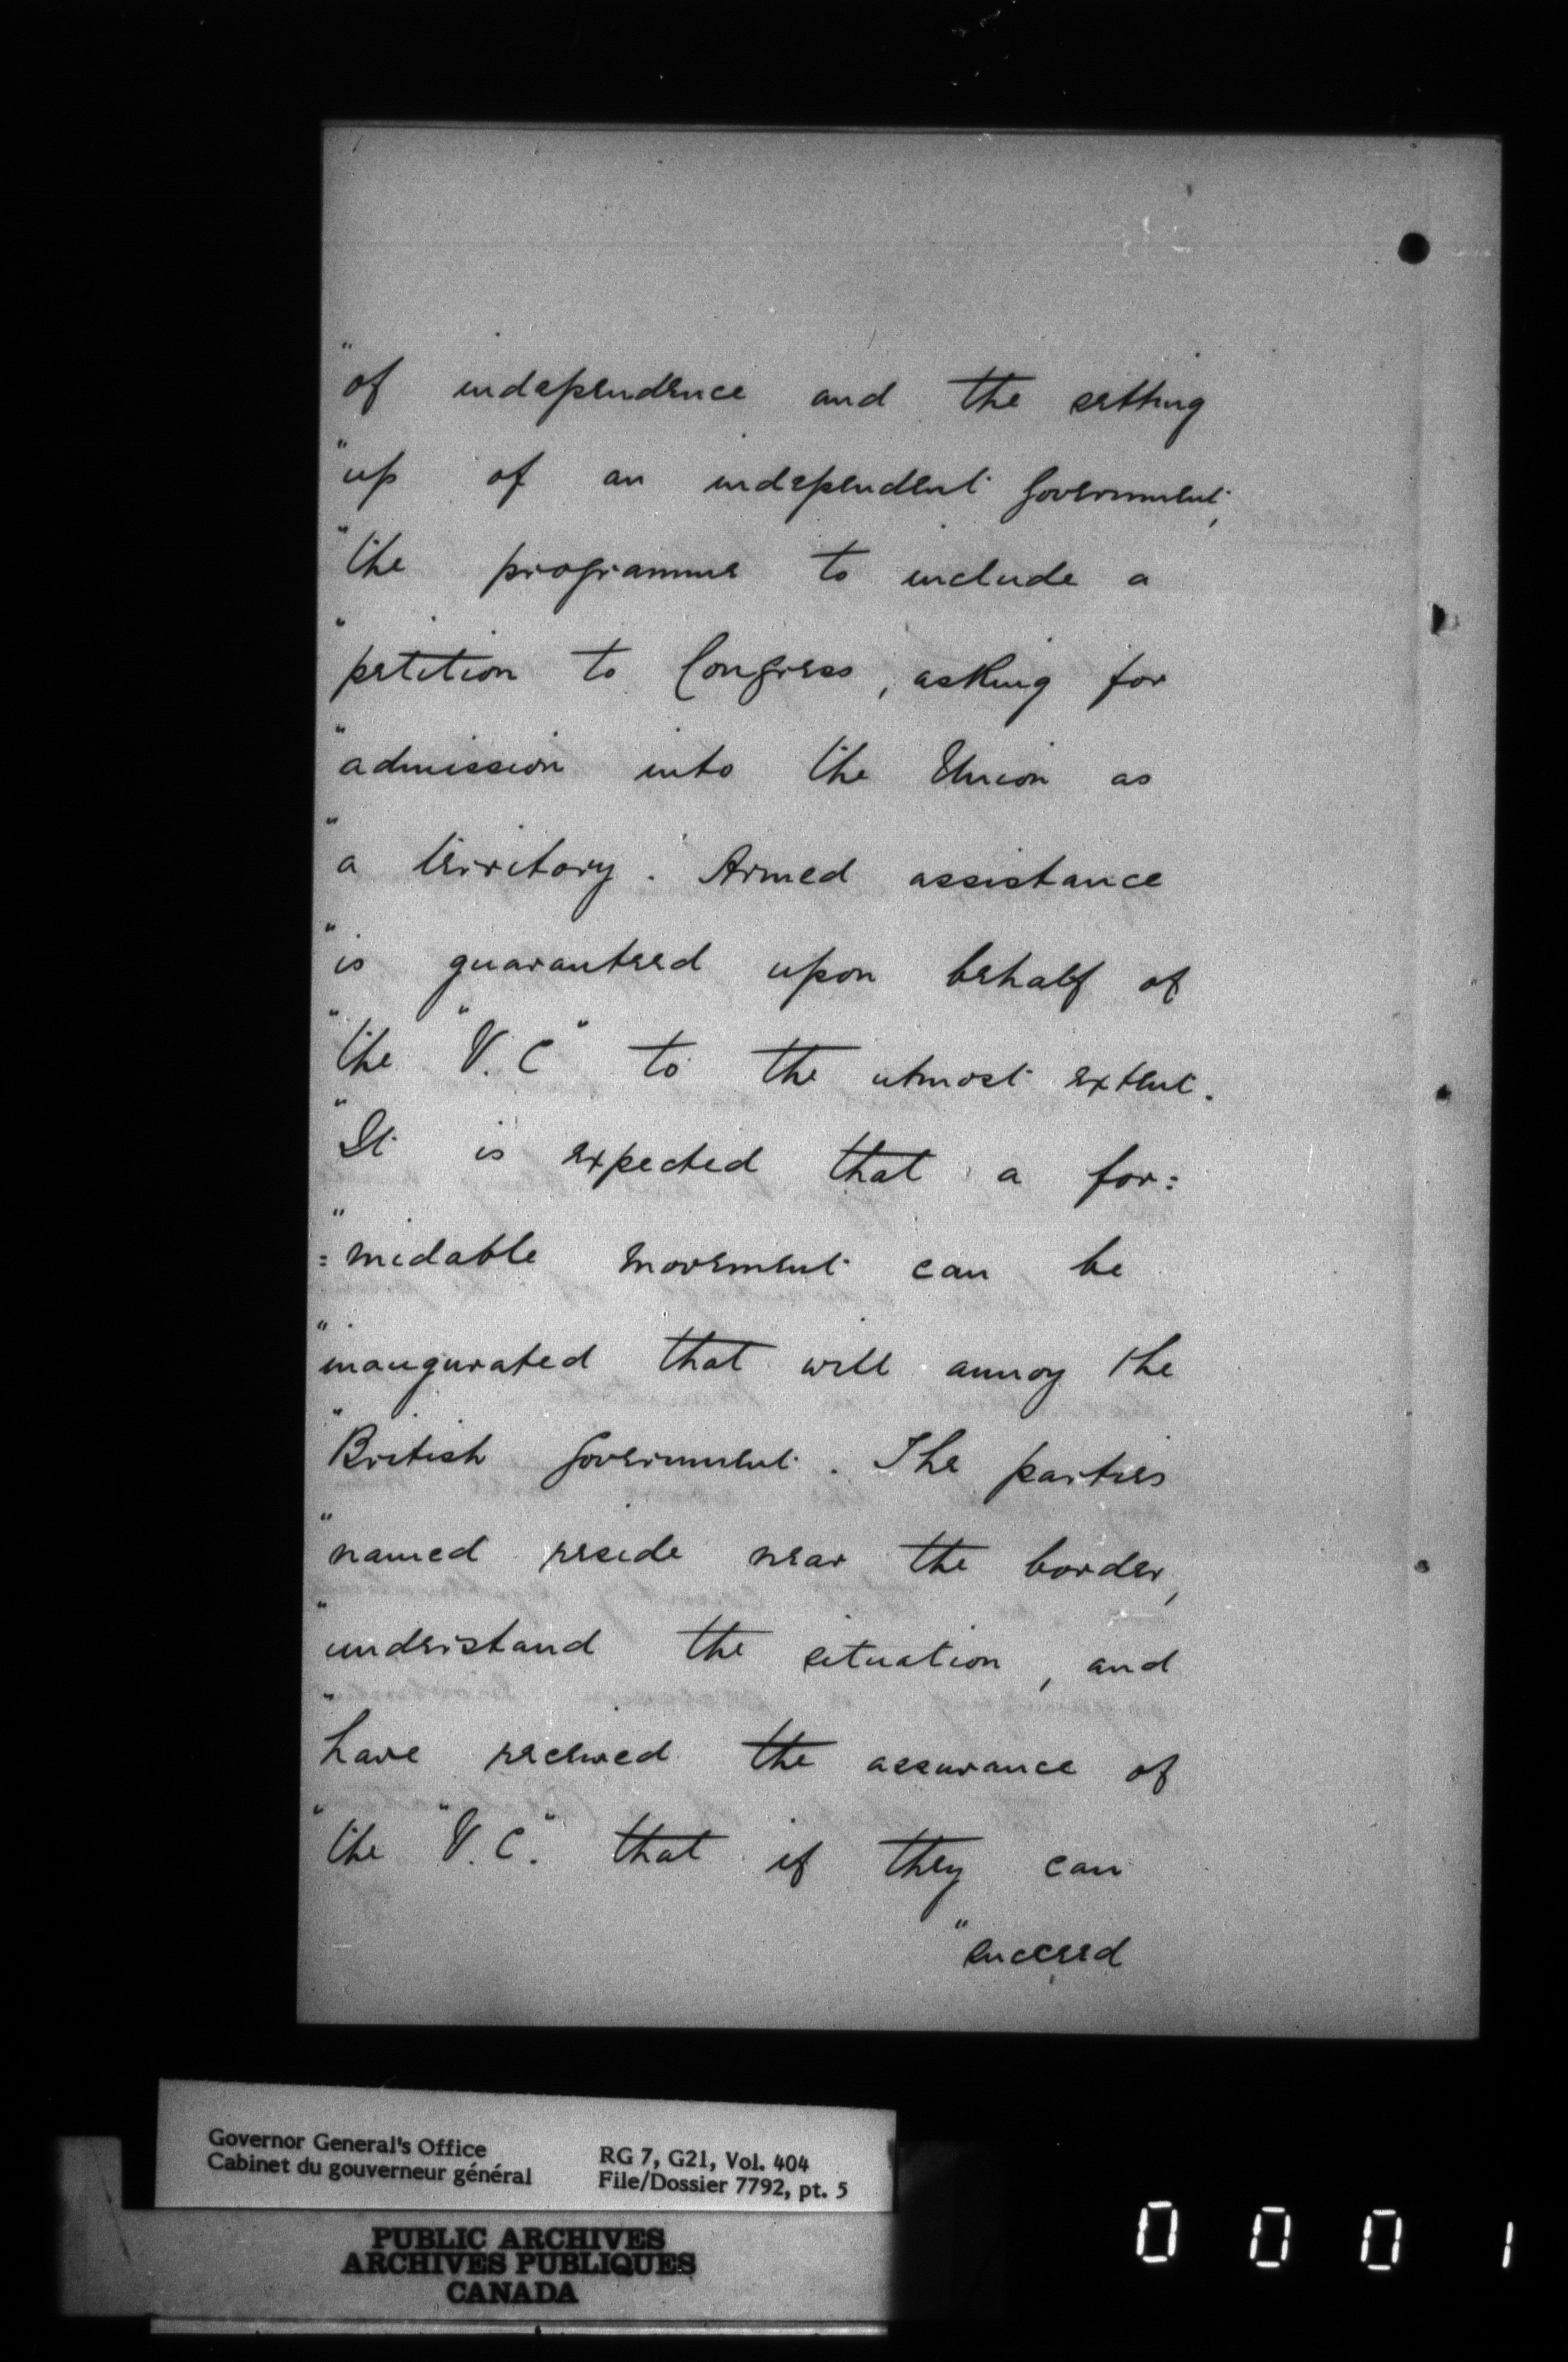 "of independence and the setting
"up of an independent Government,
"the programme to include a
"petition to Congress, asking for
"admission into the Union as
"a territory. Armed assistance
"is guaranteed upon behalf of
"the "V.C" to the utmost extent.
"It is expected that a for=
"=midable movement can be
"inaugurated that will annoy the
"British Government. The parties
"named reside near the border,
"understand the situation, and
"have received the assurance of
"the "V.C." that if they can
"succeed
Governor General's Office
Cabinet du gouverneur général
RG 7, G21, Vol. 404
File/Dossier 7792, pt. 5
PUBLIC ARCHIVES
ARCHIVES PUBLIQUES
CANADA
0 0 0 1